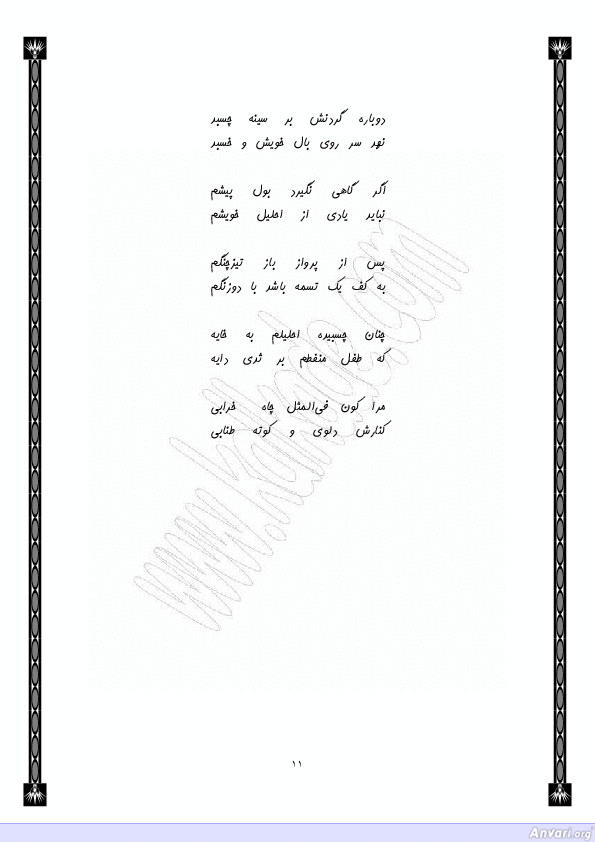 دوباره گردنش بر سینه چسبد
نهد سر روی بال خویش و خسبد
اگر گاهی نگیرد بول پیشم
نیاید یادی از احلیل خویشم
پس از پرواز باز تیزچنگم
به کف یک تسمه باشد با دوزنگم
چنان چسبیده احلیلم به خایه
که طفل منفطم بر ثدی دایه
مرا کون فی‌المثل چاه خرابی
کنارش دلوی و کوته طنابی
www.kafkade.com
۱۱
Anvari.org